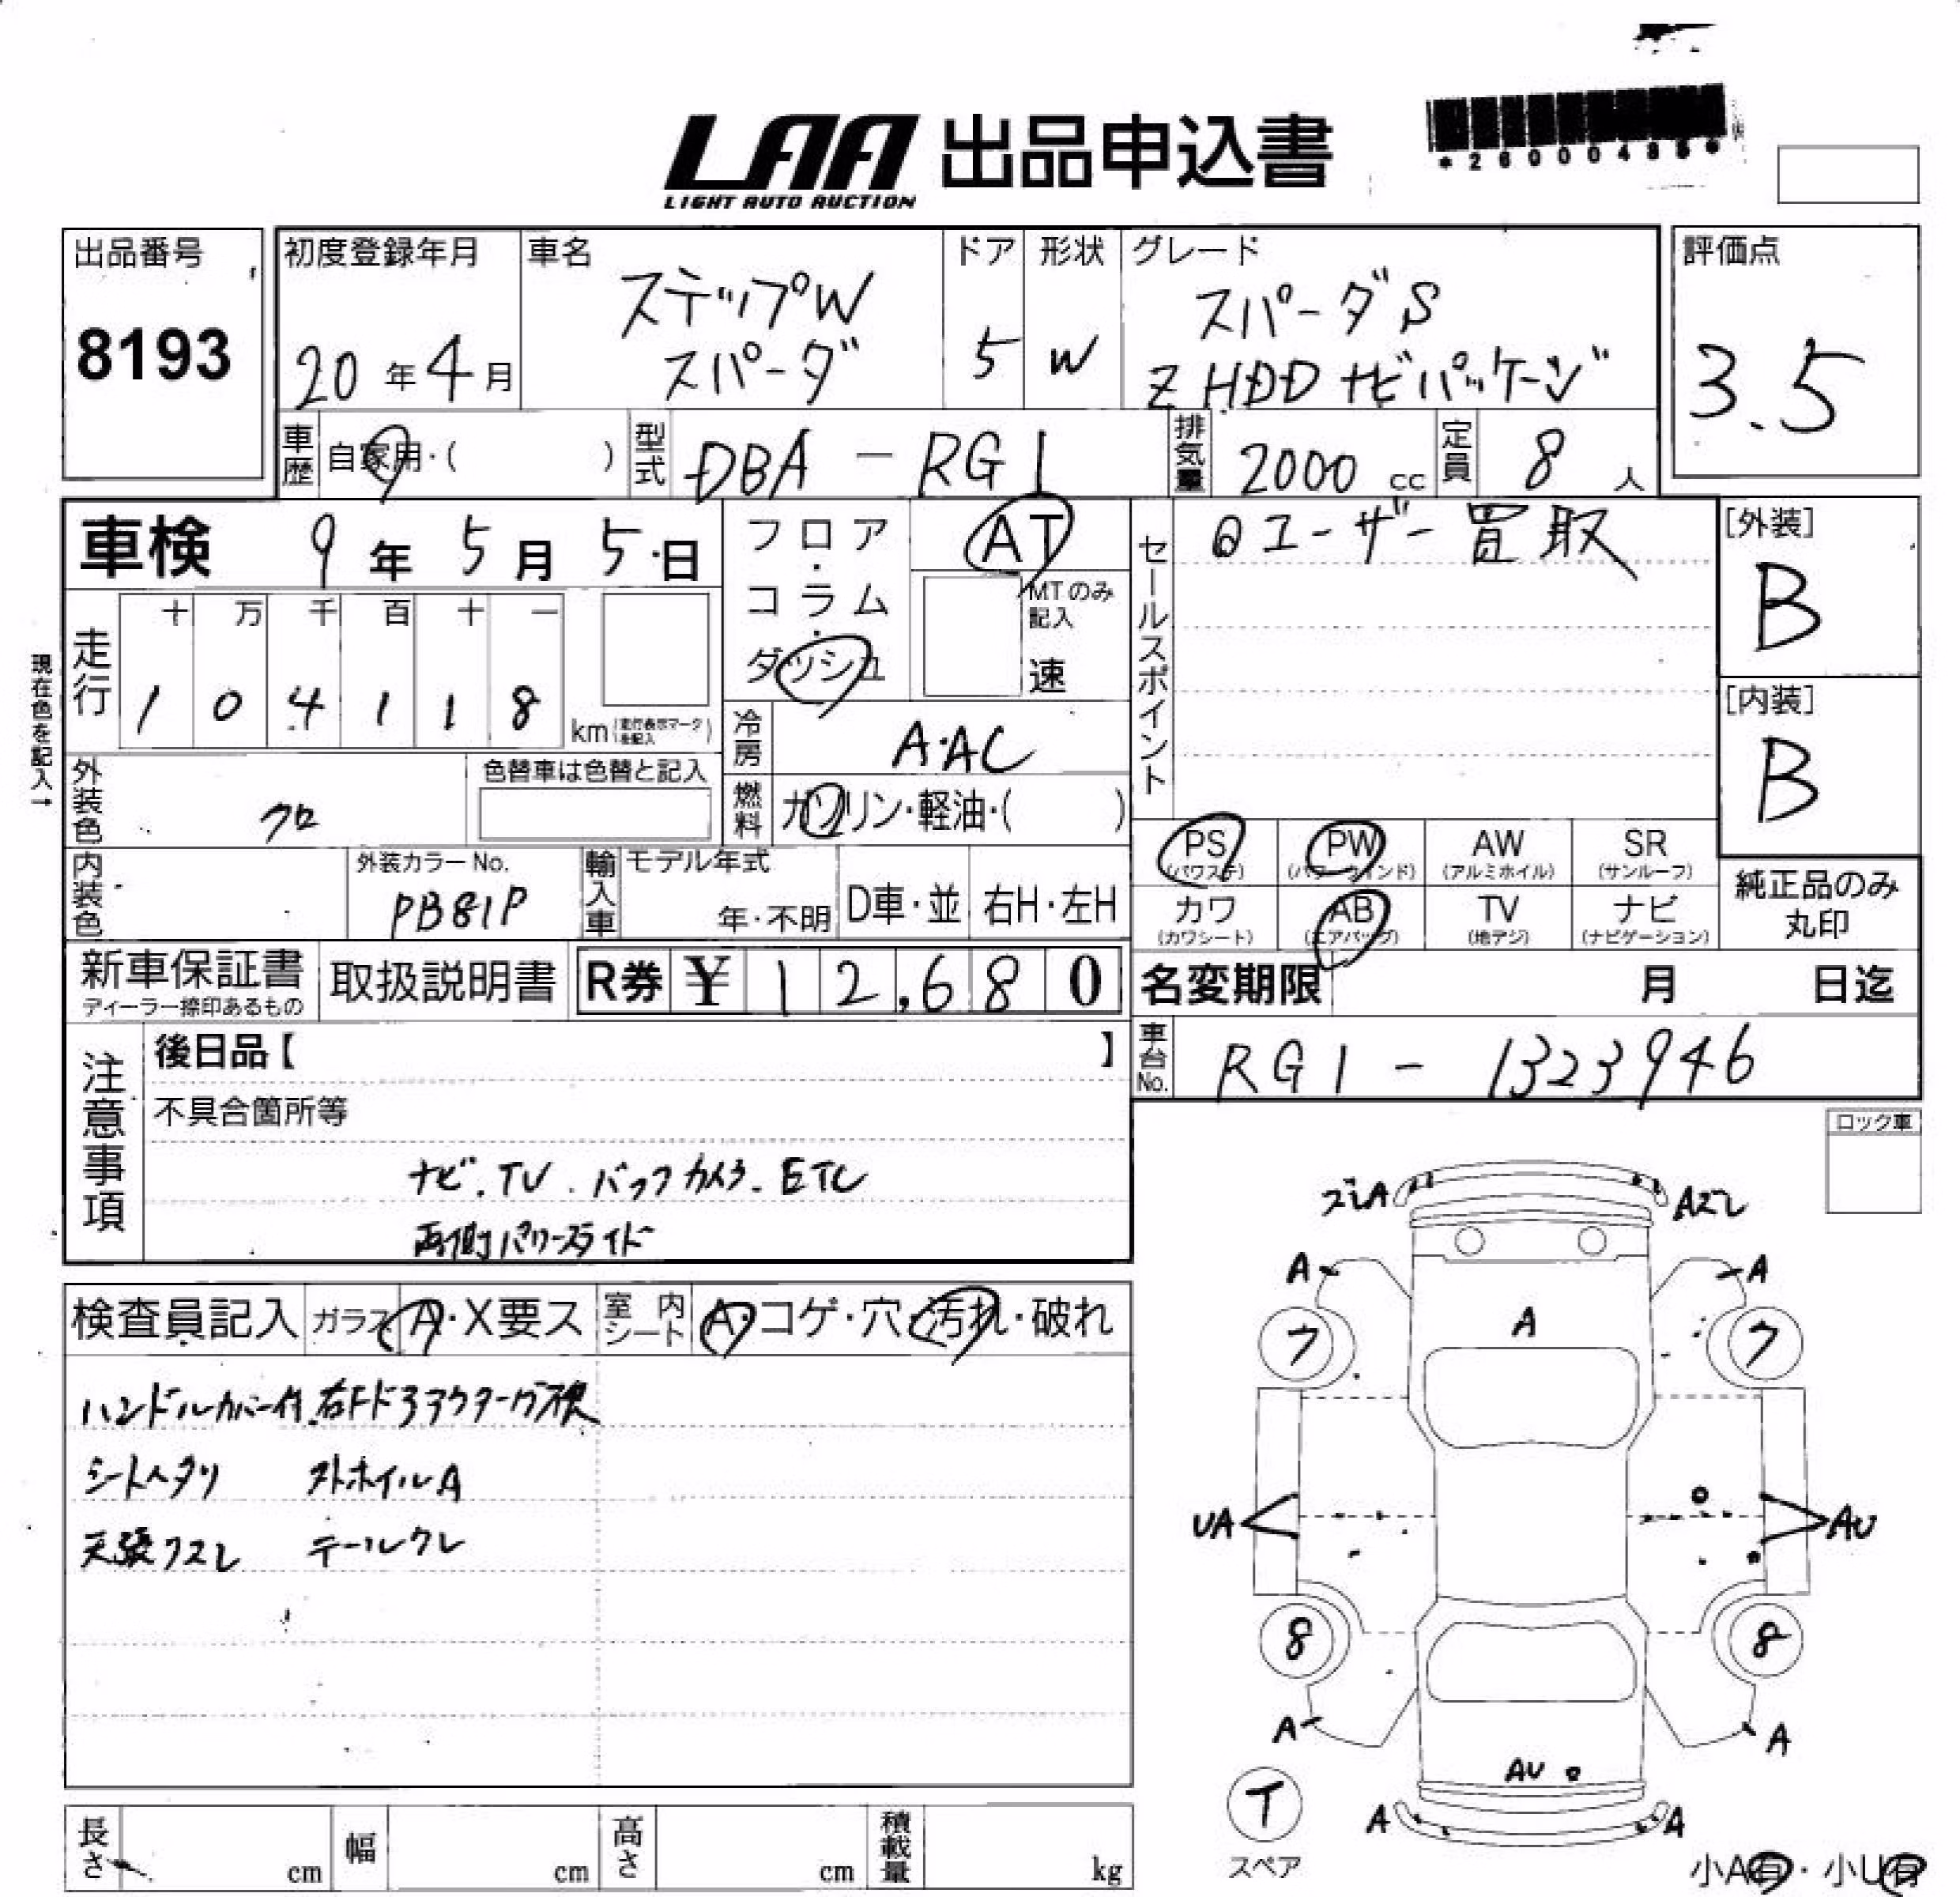 LAA 出品申込書
LIGHT AUTO AUCTION
*26000485*
出品番号
8193
初度登録年月
20年4月
車名
ステップW
スパーダ
ドア
5
形状
W
グレード
スパーダS
Z HDDナビパッケージ
評価点
3.5
車歴
自家用・( )
型式
DBA-RG1
排気量
2000 cc
定員
8人
車検 9年5月5日
フロア・コラム・ダッシュ
AT
MTのみ記入
速
セールスポイント
◎ユーザー買取
[外装]
B
現在色を記入→
走行
十 万 千 百 十 一
1 0 4 1 1 8
km (走行表示マークを記入)
[内装]
B
冷房
A・AC
外装色
クロ
色替車は色替と記入
燃料
ガソリン・軽油・( )
PS (パワステ)
PW (パワーウインド)
AW (アルミホイル)
SR (サンルーフ)
内装色
外装カラーNo.
PB81P
輸入車
モデル年式
年・不明
D車・並
右H・左H
カワ (カワシート)
AB (エアバッグ)
TV (地デジ)
ナビ (ナビゲーション)
純正品のみ丸印
新車保証書
ディーラー捺印あるもの
取扱説明書
R券 ¥ 12,680
名変期限 月 日迄
注意事項
後日品【 】
車台No.
RG1-1323946
不具合箇所等
ナビ.TV.バックカメラ.ETC
両側パワースライド
ロック車
検査員記入
ガラス
A・X要ス
室内シート
A・コゲ・穴・汚れ・破れ
ハンドルカバー付 右Fドアアウターガラス摸
シートヘタリ 外ホイルA
天張クスレ テールクレ
ズレA
Aズレ
A
A
A
7
7
UA
AU
8
8
A
A
AU
A
A
T
スペア
小A有・小U有
長さ cm
幅 cm
高さ cm
積載量 kg